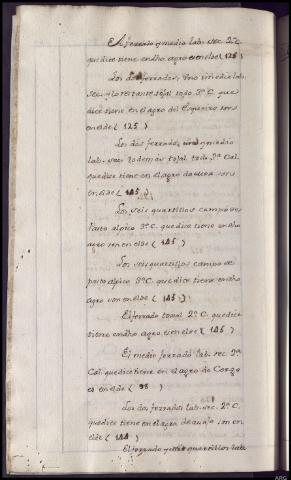 El ferrado y medio lab. sec. 2ª C.
que dice tiene en dho agro es en el de (125)
Los dos ferrados, uno y medio lab.
sec. y lo restante tojal todo 3ª C. que
dice tiene en el agro del son
en el de (125)
Los dos ferrados, uno y medio
lab. sec. lo demas tojal todo 3ª Cal.
que dice tiene en el agro son
en el de (145)
Los seis quartillos campo de
Pasto alpico 3ª C. que dice tiene en dho
agro son en el de (145)
Los seis quartillos campo de
pasto alpico 3ª C. que dice tiene en dho
agro son en el de (145)
El ferrado tojal 2ª C. que dice
tiene en dho agro es en el de (145)
El medio ferrado lab. sec. 2ª
Cal. que dice tiene en el agro de
es en el de (98)
Los dos ferrados lab. sec. 2ª C.
que dice tiene en el agro de son en
el de (144)
El ferrado y quartillos lab.
ARG